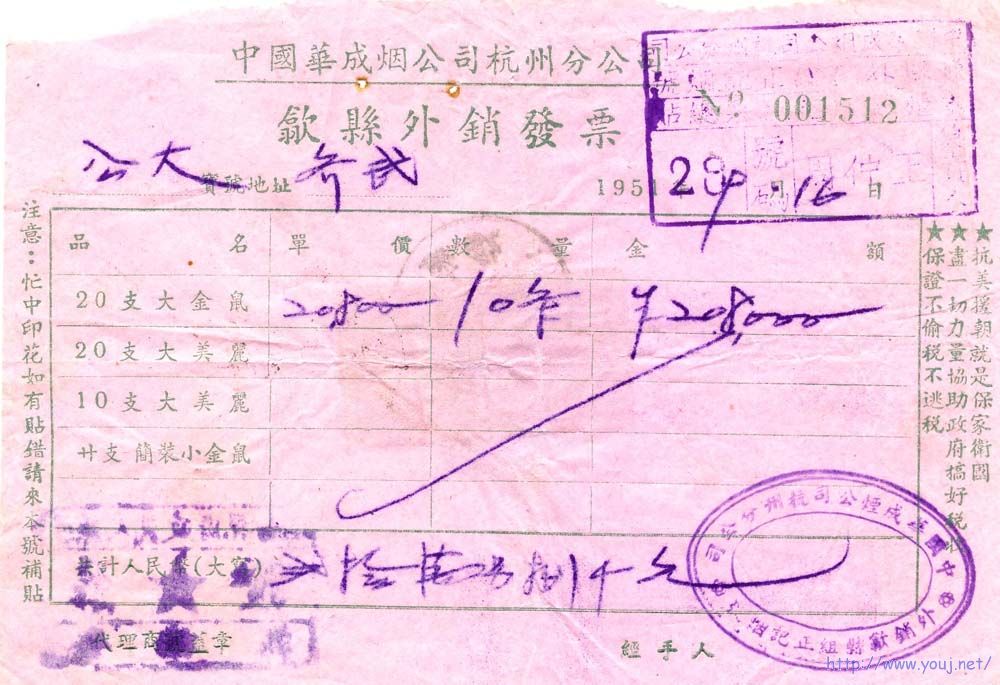 中國華成烟公司杭州分公司
歙縣外銷發票
№ 001512
公大 寶號地址
1951 9月16日
品名 單價 數量 金額
20支大金鼠 20,800 10 ¥208,000
20支大美麗
10支大美麗
廿支簡裝小金鼠
共計人民幣(大寫) 拾 萬 捌千元
代理商號蓋章
經手人
注意：忙中印花如有貼借請來本號補貼
★抗美援朝就是保家衛國
★盡一切力量協助政府搞好稅
★保證不偷税不逃税
中國華成煙公司杭州分公司
外銷歙縣組正記
http://www.youj.net/